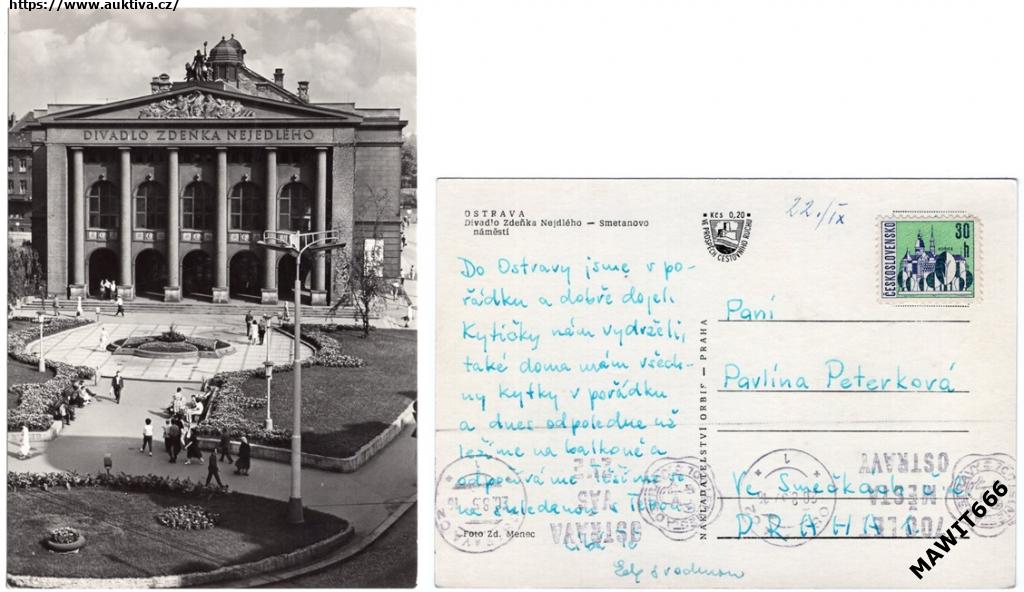 https://www.auktiva.cz/
DIVADLO ZDEŇKA NEJEDLÉHO
OSTRAVA
Divadlo Zdeňka Nejdlého — Smetanovo
náměstí
Kčs 0,20
VE PROSPĚCH CESTOVNÍHO RUCHU
22./IX
ČESKOSLOVENSKO
30
h
Do Ostravy jsme v po-
řádku a dobře dojeli.
Kytičky nám vydržely,
také doma mám všech-
ny kytky v pořádku
a dnes odpoledne už
ležíme na balkoně a
odpočíváme. Těšíme se
na shledanou
Foto Zd. Menec
NAKLADATELSTVÍ ORBIS — PRAHA
Paní
Pavlína Peterková
Ve Smečkách
PRAHA 1
OSTRAVA
VÁS
ZVE
OSTRAVY
MĚSTA
MAWIT666